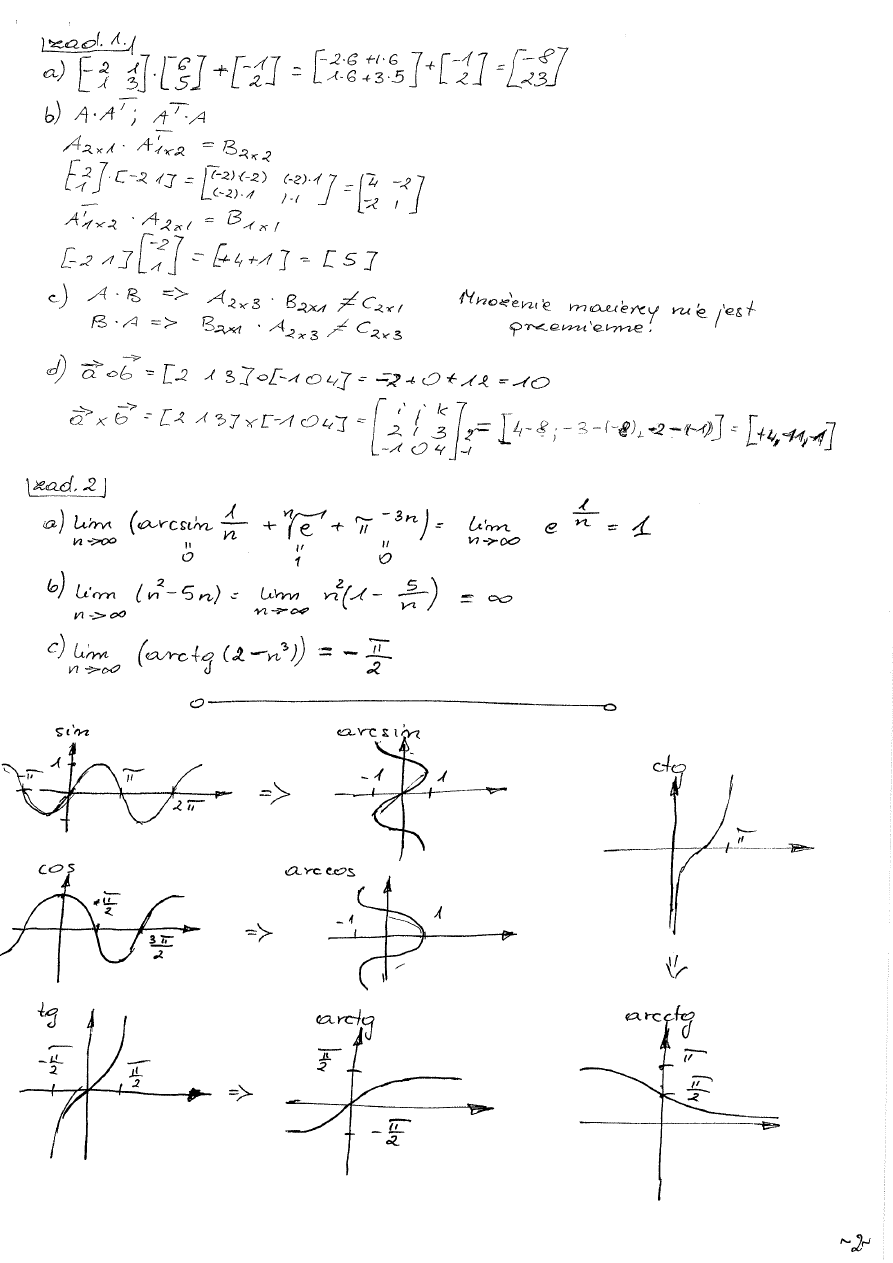 zad. 1.
a) [-2 1; 1 3]·[6; 5] + [-1; 2] = [-2·6 +1·6; 1·6+3·5] + [-1; 2] = [-8; 23]
b) A·Aᵀ; Aᵀ·A
A₂ₓ₁ · Aᵀ₁ₓ₂ = B₂ₓ₂
[-2; 1]·[-2 1] = [(-2)(-2) (-2)·1; (-2)·1 1·1] = [4 -2; -2 1]
Aᵀ₁ₓ₂ · A₂ₓ₁ = B₁ₓ₁
[-2 1][-2; 1] = [+4+1] = [5]
c) A·B => A₂ₓ₃ · B₂ₓ₁ ≠ C₂ₓ₁
B·A => B₂ₓ₁ · A₂ₓ₃ ≠ C₂ₓ₃
Mnożenie macierzy nie jest
przemienne!
d) a⃗∘b⃗ = [2 1 3]∘[-1 0 4] = -2+0+12 = 10
a⃗×b⃗ = [2 1 3]×[-1 0 4] = [i j k; 2 1 3; -1 0 4] =
zad. 2
a) lim n→∞ (arcsin 1/n + ⁿ√e + π⁻³ⁿ) = lim n→∞ e^(1/n) = 1
0 1 0
b) lim n→∞ (n²-5n) = lim n→∞ n²(1 - 5/n) = ∞
c) lim n→∞ (arctg(2-n³)) = -π/2
sin
-π 1 π 2π
=>
arcsin
-1 1
ctg
π
cos
π/2 3π/2
=>
arccos
-1 1
tg
-π/2 π/2
=>
arctg
π/2
-π/2
arcctg
π
π/2
~2~